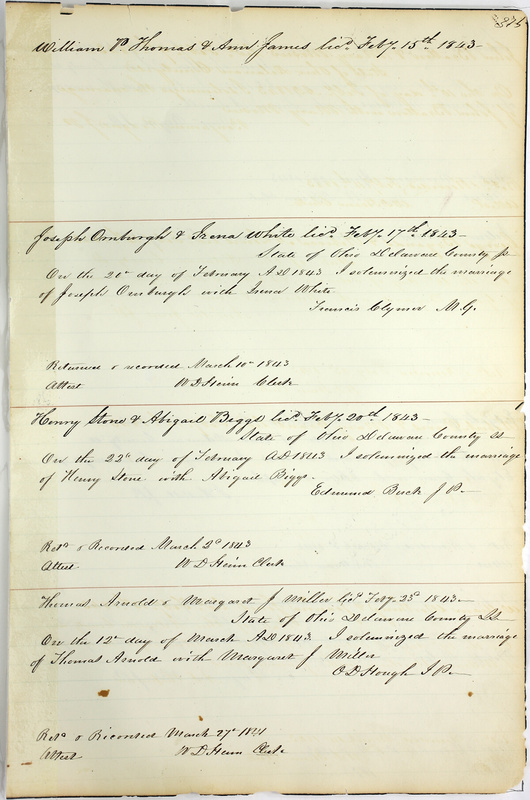 William P. Thomas & Ann James licd. Feby. 15th. 1843
Joseph Ornburgh & Irena White licd. Feby. 17th. 1843
State of Ohio Delaware County ss
On the 20th day of February AD 1843 I solemnized the marriage
of Joseph Ornburgh with Irena White
Francis Clymer M.G.
Returned & recorded March 10th 1843
Attest W D Heim Clerk
Henry Stone & Abigail Biggs licd. Feby. 20th. 1843
State of Ohio Delaware County SS
On the 22d day of February AD 1843 I solemnized the marriage
of Henry Stone with Abigail Biggs.
Edmund Buck J P.
Retd & Recorded March 2d 1843
Attest W D Heim Clerk
Thomas Arnold & Margaret J Miller licd Feby. 23d 1843.
State of Ohio Delaware County SS
On the 12th day of March AD 1843. I solemnized the marriage
of Thomas Arnold with Margaret J Miller
O D Hough J P.
Retd & Recorded March 27th
Attest W D Heim Clerk